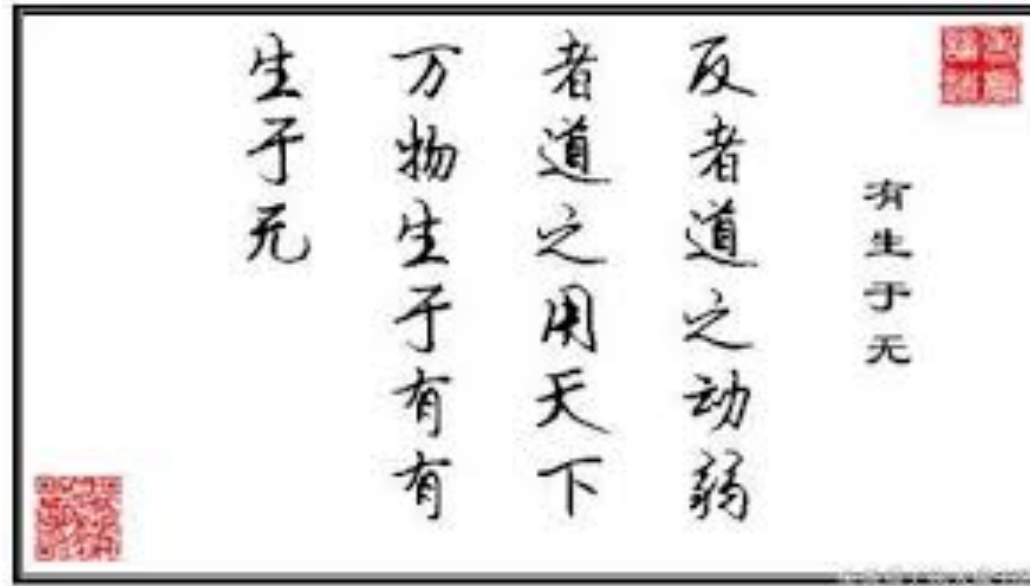 有生于无
反者道之动弱
者道之用天下
万物生于有有
生于无